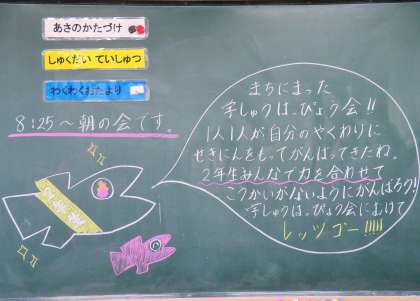 あさのかたづけ
しゅくだい ていしゅつ
わくわくおたより
8:25～朝の会です。
まちにまった
学しゅうはっぴょう会!!
1人1人が自分のやくわりに
せきにんをもってがんばってきたね。
2年生みんなで力を合わせて
こうかいがないようにがんばろう!!
学しゅうはっぴょう会にむけて
レッツゴー!!!!!